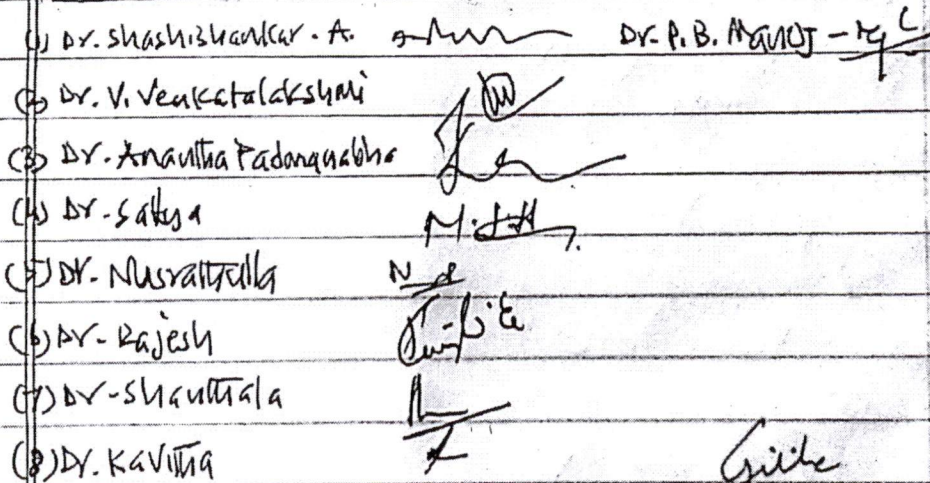 (1) Dr. Shashishankar. A. Dr. P. B. Manoj -
(2) Dr. V. Venkatalakshmi
(3) Dr. Anantha Padmanabha
(4) Dr. Sathya
(5) Dr. Nusrathulla
(6) Dr. Rajesh
(7) Dr. Shanthala
(8) Dr. Kavitha